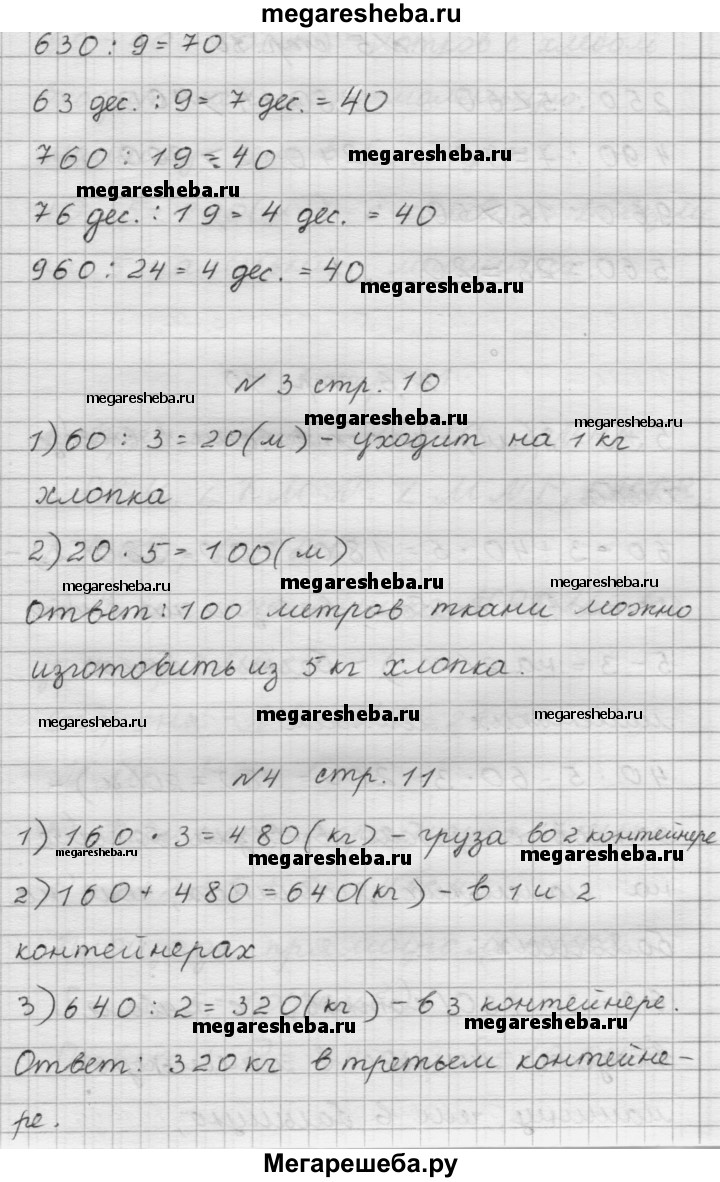 megaresheba.ru
630 : 9 = 70
63 дес. : 9 = 7 дес. = 40
760 : 19 = 40
megaresheba.ru
megaresheba.ru
76 дес. : 19 = 4 дес. = 40
960 : 24 = 4 дес. = 40
megaresheba.ru
№ 3 стр. 10
megaresheba.ru
megaresheba.ru
megaresheba.ru
1) 60 : 3 = 20 (м) - уходит на 1 кг
хлопка
2) 20 · 5 = 100 (м)
megaresheba.ru
megaresheba.ru
megaresheba.ru
Ответ: 100 метров ткани можно
изготовить из 5 кг хлопка.
megaresheba.ru
megaresheba.ru
megaresheba.ru
№4 стр. 11
1) 160 · 3 = 480 (кг) - груза во 2 контейнере
megaresheba.ru
megaresheba.ru
megaresheba.ru
2) 160 + 480 = 640 (кг) - в 1 и 2
контейнерах
3) 640 : 2 = 320 (кг) - в 3 контейнере.
megaresheba.ru
megaresheba.ru
Ответ: 320 кг в третьем контейне-
ре.
Мегарешеба.ру